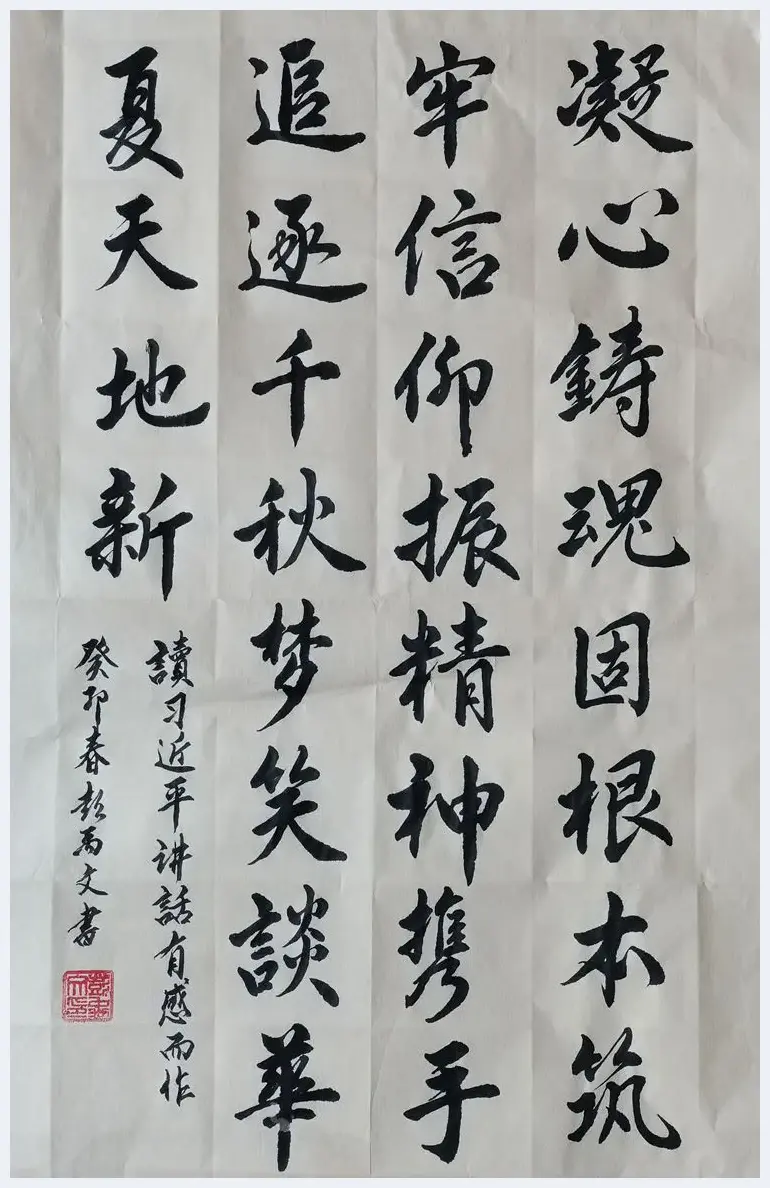 凝心鑄魂固根本筑
牢信仰振精神携手
追逐千秋梦笑談華
夏天地新
讀习近平讲話有感而作
癸卯春彭為文書